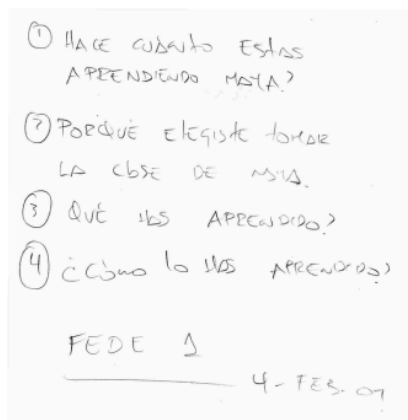 ① HACE CUÁNTO ESTAS
APRENDIENDO MAYA?
② PORQUÉ ELEGISTE TOMAR
LA CLASE DE MAYA.
③ QUÉ HAS APRENDIDO?
④ ¿CÓMO lo HAS APRENDIDO?
FEDE 1
4 - FEB. 09